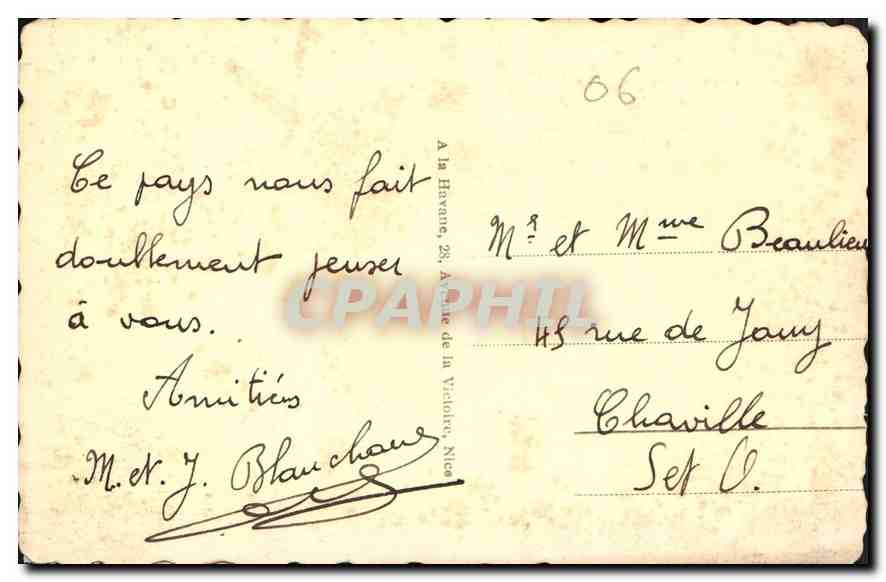 06
Ce pays nous fait
doublement penser
à vous.
Amitiés
M. et J. Blanchard
A la Havane, 28, Avenue de la Victoire, Nice
Mr et Mme Beaulieu
45 rue de Jouy
Chaville
S et O.
CPAPHIL